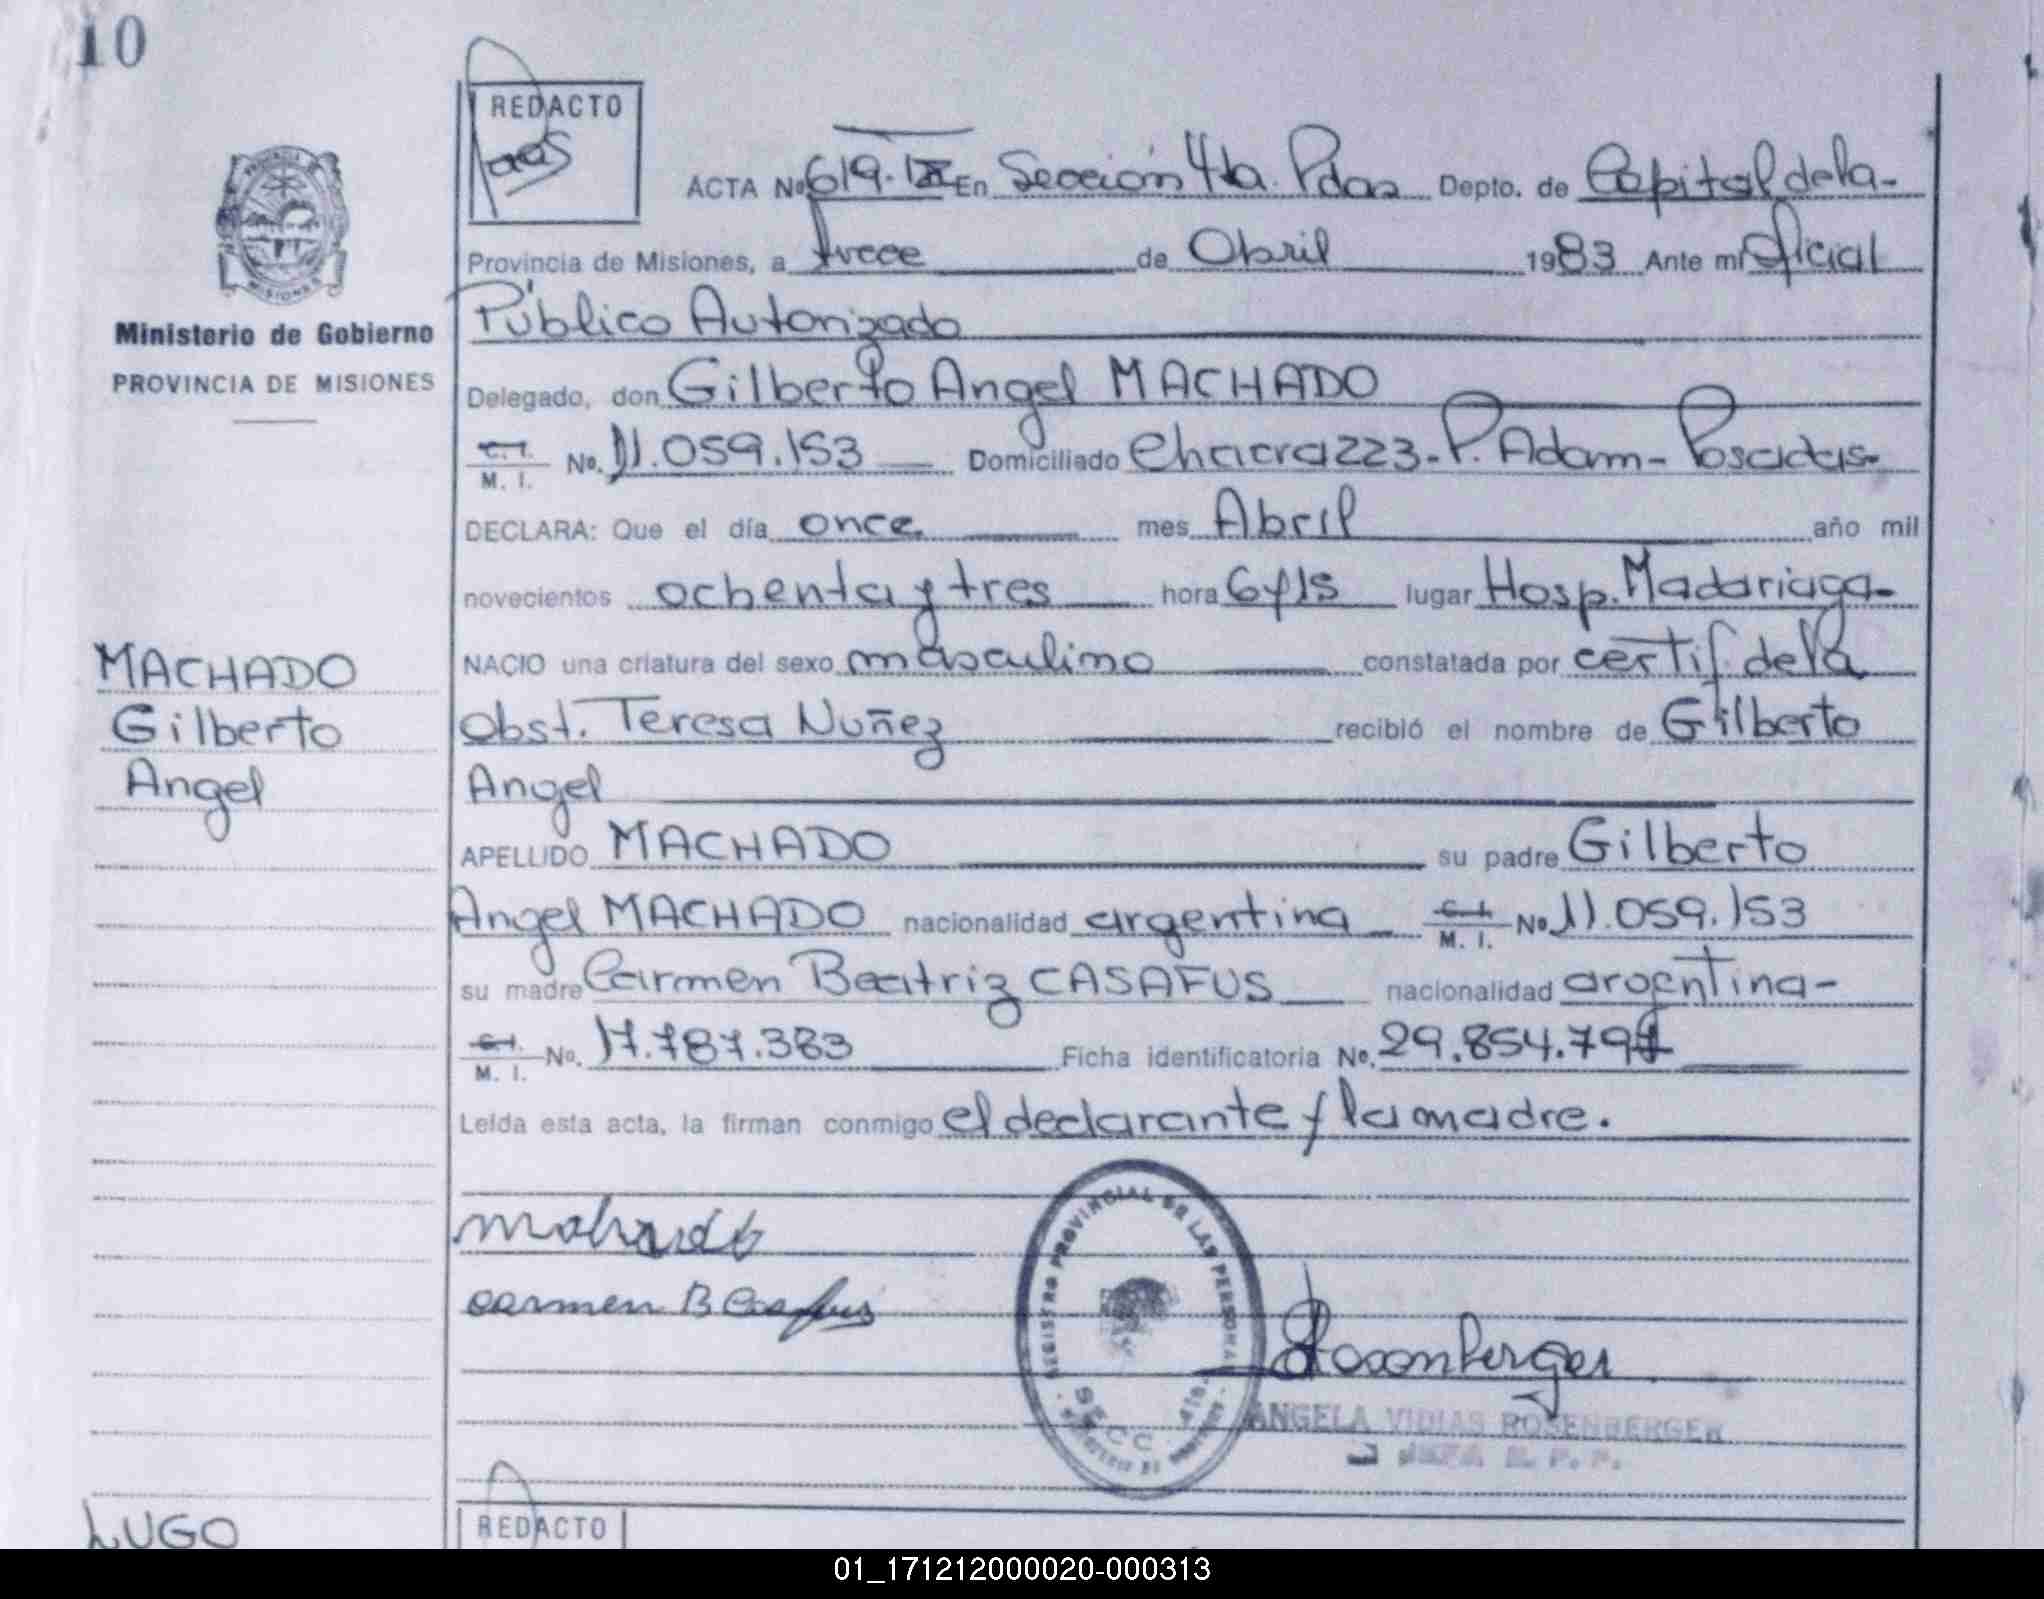 10
REDACTO
ACTA No 619. En Sección 4ta. Pdas Depto. de Capital de la-
Provincia de Misiones, a trece de Abril 1983 Ante mi Oficial
Público Autorizado
Ministerio de Gobierno
PROVINCIA DE MISIONES
Delegado, don Gilberto Angel MACHADO
C. I. M. I. No. 11.059.153 Domiciliado Chacra 223-P. Adam- Posadas-
DECLARA: Que el día once mes Abril año mil
novecientos ochenta y tres hora 6 y 15 lugar Hosp. Madariaga-
NACIO una criatura del sexo masculino constatada por certif. de la
MACHADO
Gilberto
Angel
obst. Teresa Nuñez recibió el nombre de Gilberto
Angel
APELLIDO MACHADO su padre Gilberto
Angel MACHADO nacionalidad argentina C. I. M. I. No 11.059.153
su madre Carmen Beatriz CASAFUS nacionalidad argentina-
C. I. M. I. No. 17.787.383 Ficha identificatoria No. 29.854.797
Leída esta acta, la firman conmigo el declarante y la madre.
carmen B Casafus
REGISTRO PROVINCIAL DE LAS PERSONAS
SECC. 4ta.
Rosenberger
ANGELA VIDIAS ROSENBERGER
LUGO
REDACTO
01_171212000020-000313